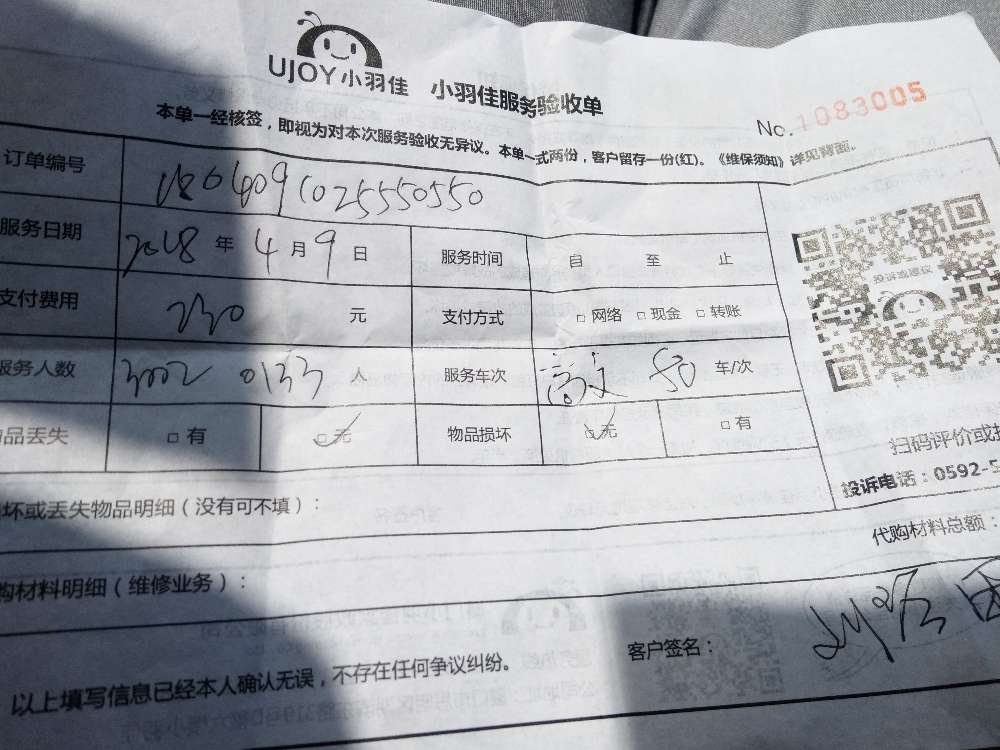 UJOY小羽佳 小羽佳服务验收单
No.1083005
本单一经核签，即视为对本次服务验收无异议。本单一式两份，客户留存一份(红)。《维保须知》详见背面。
订单编号 1804091025550550
服务日期 2018 年 4 月 9 日 服务时间 自 至 止
支付费用 230 元 支付方式 □ 网络 □ 现金 □ 转账
服务人数 3002 0133 人 服务车次 50 车/次
品丢失 □ 有 □ 无 物品损坏 □ 无 □ 有
投诉或建议
扫码评价或
投诉电话：0592-5
坏或丢失物品明细（没有可不填）：
代购材料总额：
购材料明细（维修业务）：
客户签名：
以上填写信息已经本人确认无误，不存在任何争议纠纷。